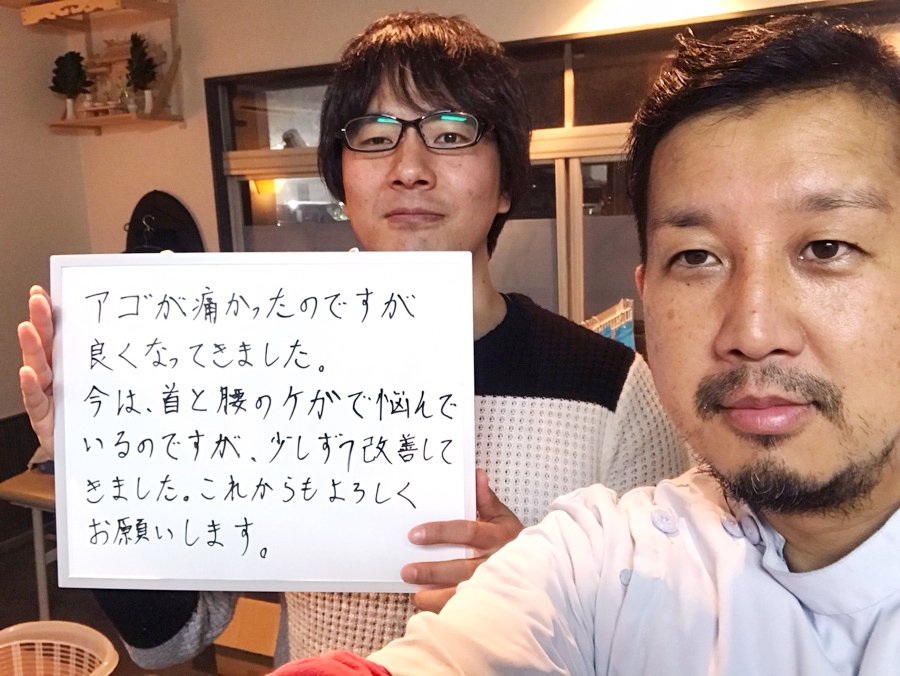 アゴが痛かったのですが
良くなってきました。
今は、首と腰のケガで悩んで
いるのですが、少しずつ改善して
きました。これからもよろしく
お願いします。